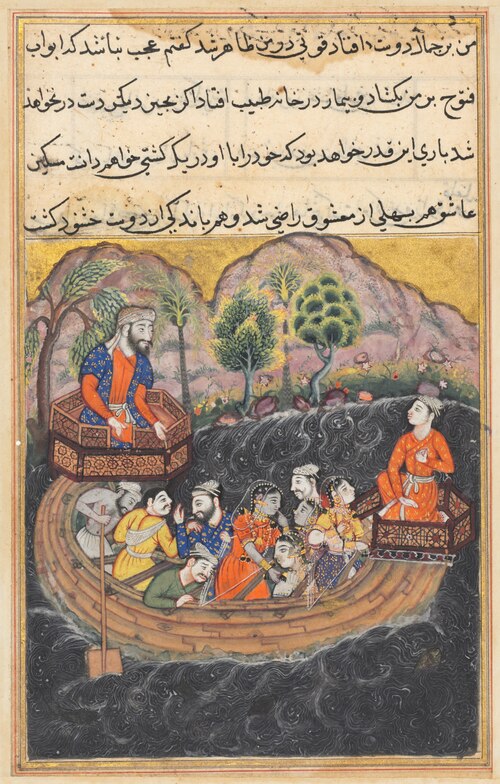 من بر جمال دوست افتاد قوتی در من ظاهر شد گفتم عجب نباشد که ابواب
فتوح بر من بگشاد و بیمار در خانه طبیب افتاد اگر بچیز دیگر دست در نخواهد
شد باری این قدر خواهد بود که خود را با او در یک کشتی خواهم دانست مسکین
عاشق هم بسهلی از معشوق راضی شد و هم باندکی از دوست خشنود گشت